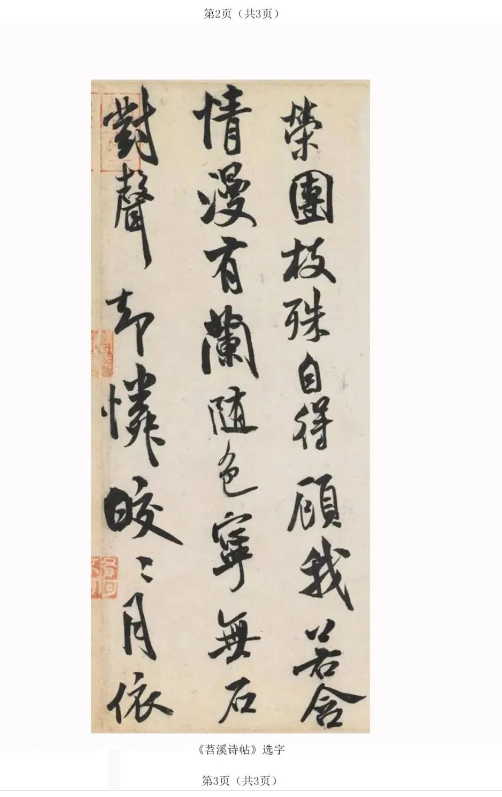 第2页（共3页）
榮團枝殊自得顧我若含
情漫有蘭随色寧無石
對聲却憐皎〻月依
《苕溪诗帖》选字
第3页（共3页）